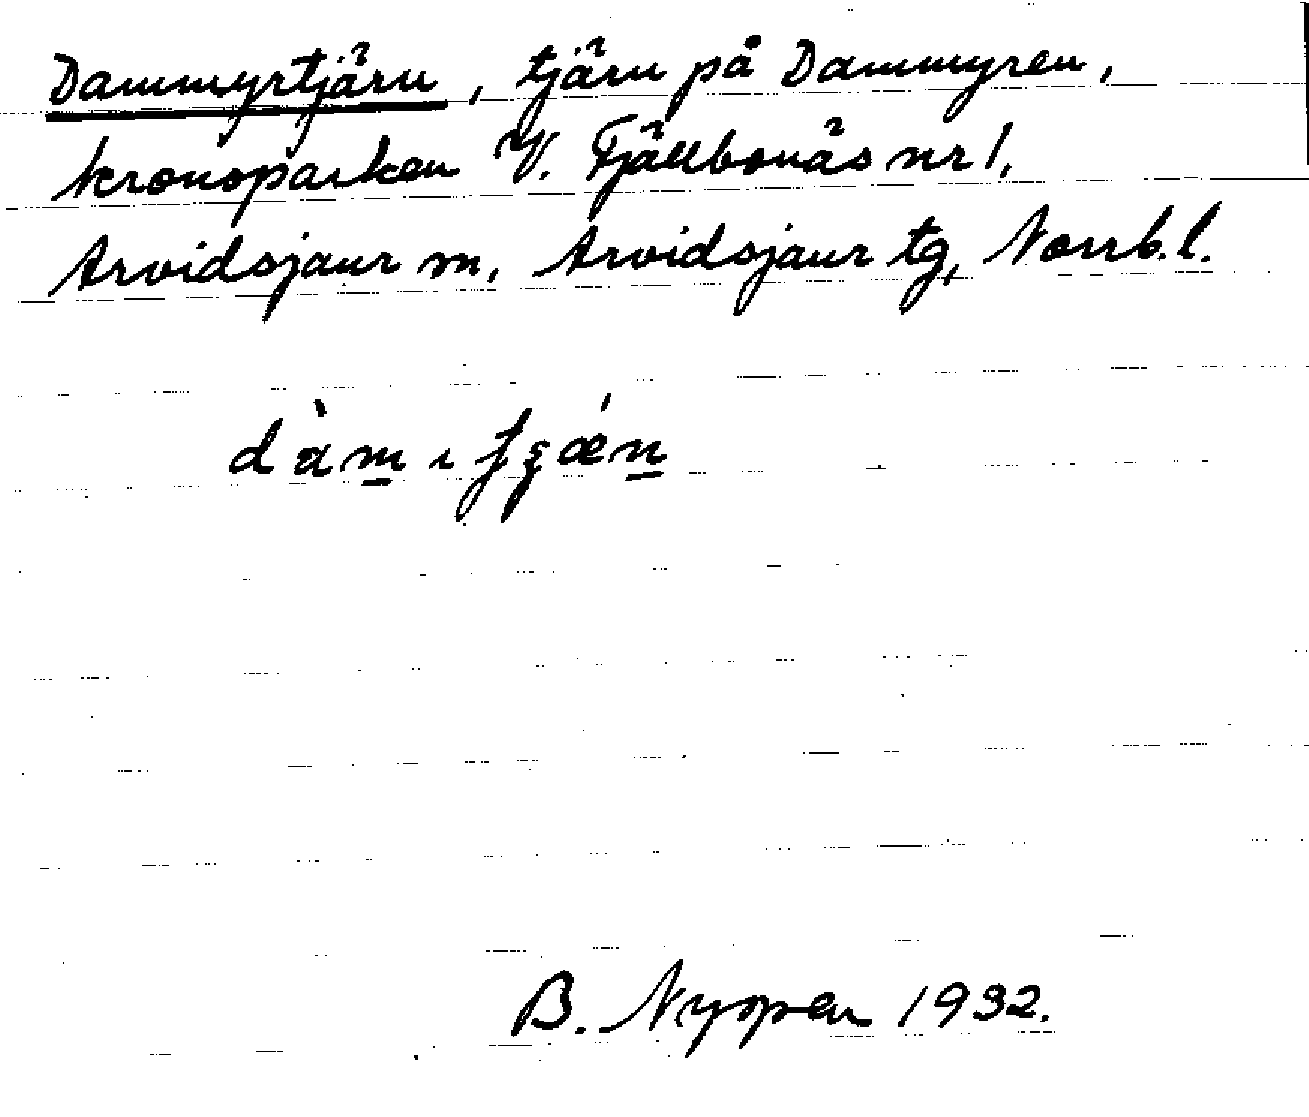 Dammyrtjärn, tjärn på Dammyren,
kronoparken V. Fjällbonäs nr 1,
Arvidsjaur sn, Arvidsjaur tg, Norrb. l.
B. Nyspen 1932.